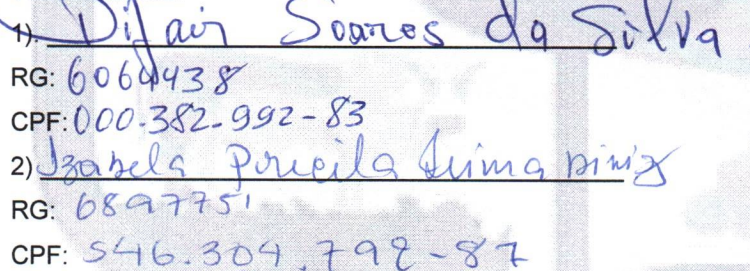 1). Difair Soares da Silva
RG: 6064438
CPF: 000.382.992-83
2) Izabela Priscila Lima Diniz
RG: 6897751
CPF: 546.304.792-87